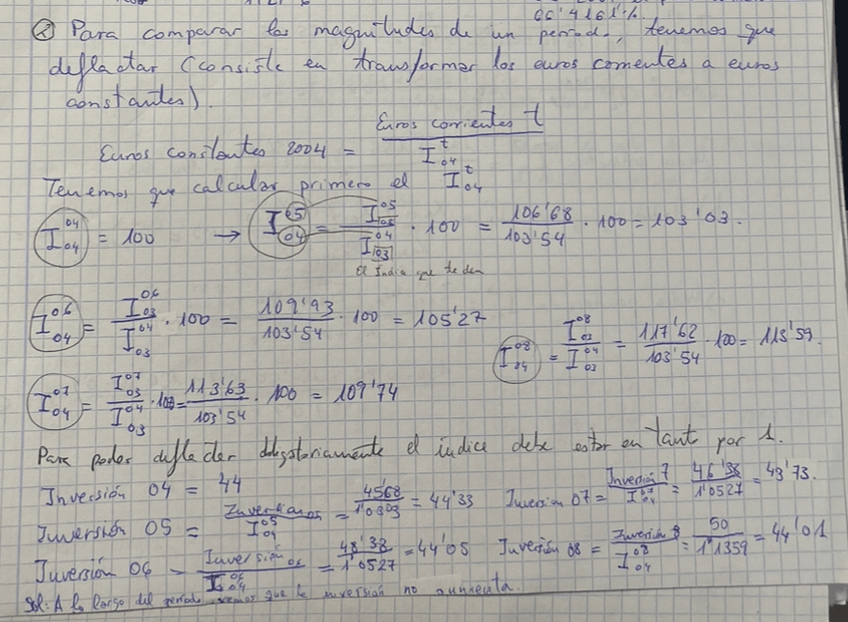 66'4161%
② Para comparar las magnitudes de un periodo, tenemos que
deflactar (consiste en transformar los euros corrientes a euros
constantes).
Euros constantes 2004 = Euros corrientes t / I₀₄ᵗ
Tenemos que calcular primero el I₀₄ᵗ
I₀₄⁰⁴ = 100 → I₀₄⁰⁵ = I₀₃⁰⁵ / I₀₃⁰⁴ · 100 = 106'68 / 103'54 · 100 = 103'03.
el Indice que te den
I₀₄⁰⁶ = I₀₃⁰⁶ / I₀₃⁰⁴ · 100 = 109'93 / 103'54 · 100 = 105'27
I₀₄⁰⁸ = I₀₃⁰⁸ / I₀₃⁰⁴ = 117'62 / 103'54 · 100 = 113'59.
I₀₄⁰⁷ = I₀₃⁰⁷ / I₀₃⁰⁴ · 100 = 113'63 / 103'54 · 100 = 109'74
Para poder deflactar obligatoriamente el indice debe estar en tanto por 1.
Inversión 04 = 44
Inversión 05 = Inversion 05 / I₀₄⁰⁵ = 45'68 / 1'0303 = 44'33
Inversion 07 = Inversión 7 / I₀₄⁰⁷ = 46'38 / 1'0527 = 43'73.
Inversión 06 = Inversión 06 / I₀₄⁰⁶ = 48'38 / 1'0527 = 44'05
Inversión 08 = Inversión 8 / I₀₄⁰⁸ = 50 / 1'1359 = 44'01
Sol: A lo largo del periodo vemos que la inversión no aumenta.